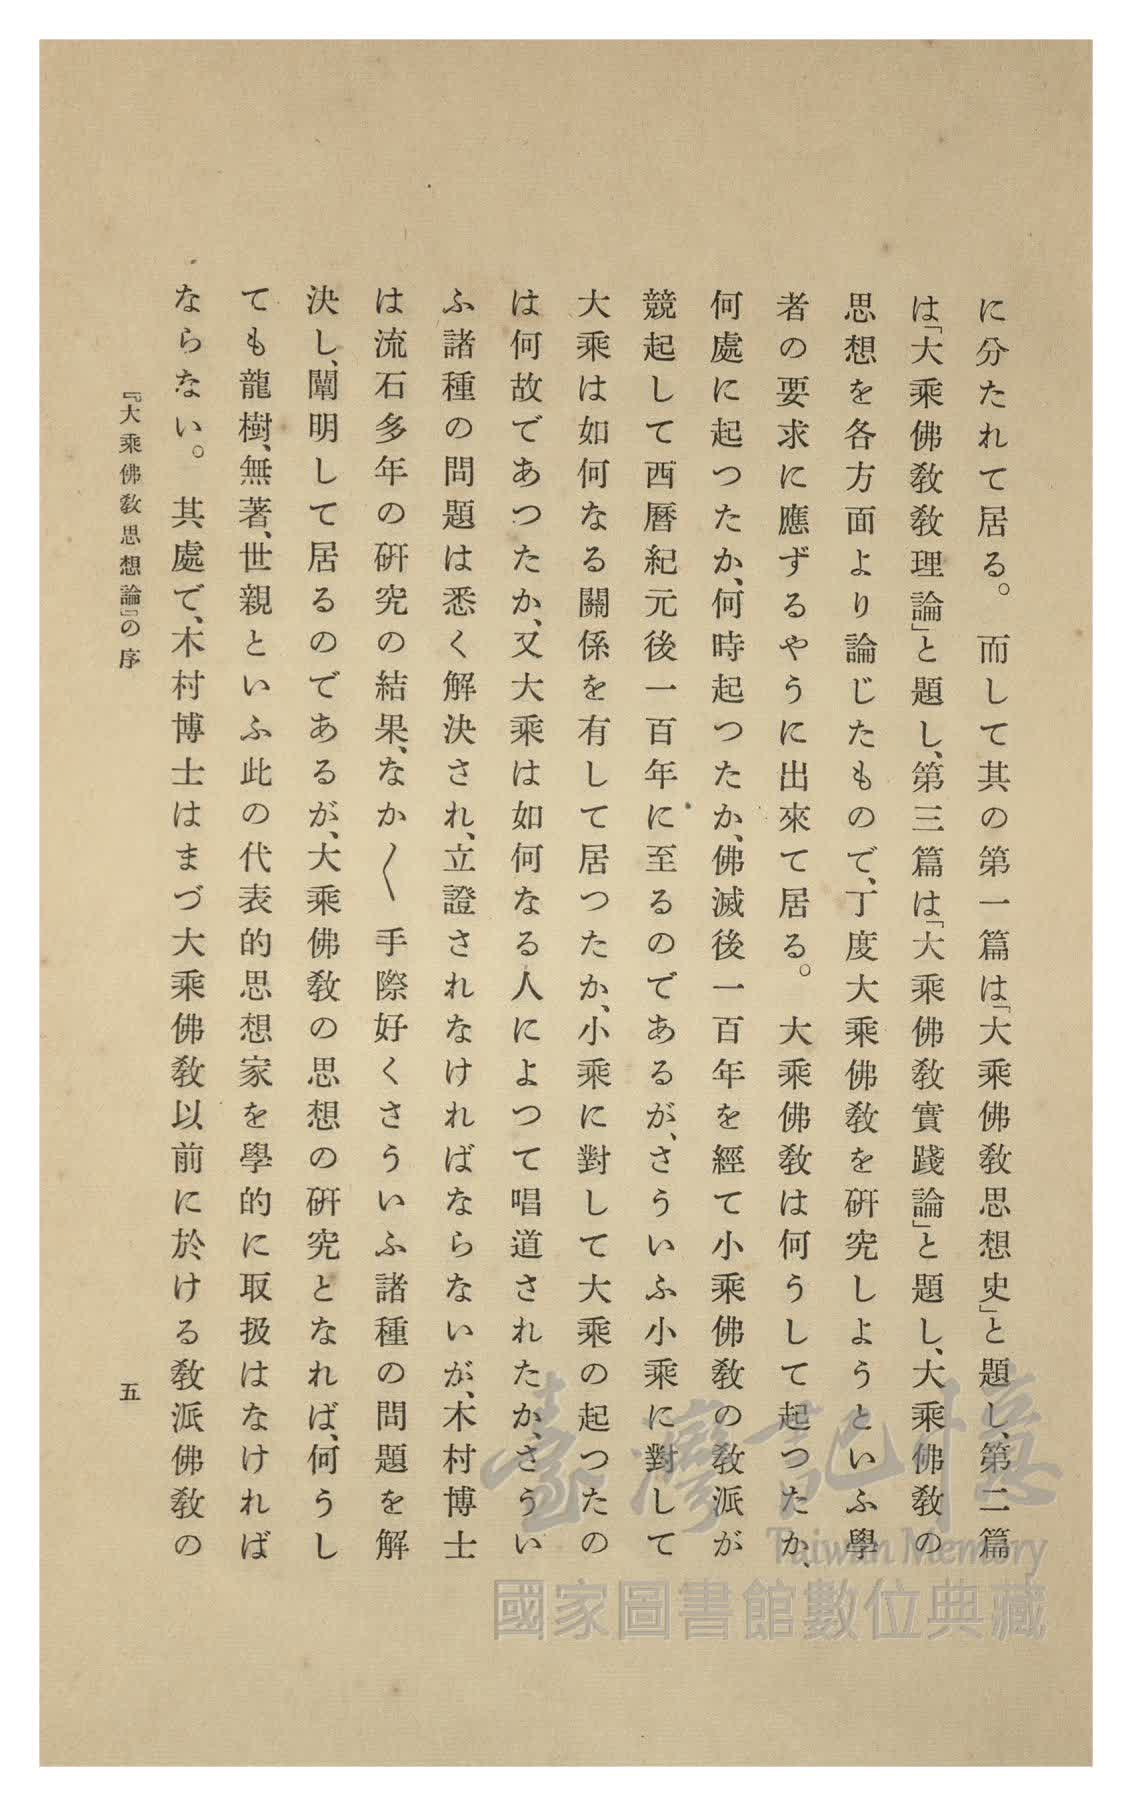 に分たれて居る。而して其の第一篇は「大乘佛敎思想史」と題し、第二篇
は「大乘佛敎敎理論」と題し、第三篇は「大乘佛敎實踐論」と題し、大乘佛敎の
思想を各方面より論じたもので、丁度大乘佛敎を硏究しようといふ學
者の要求に應ずるやうに出來て居る。大乘佛敎は何うして起つたか、
何處に起つたか、何時起つたか、佛滅後一百年を經て小乘佛敎の敎派が
競起して西曆紀元後一百年に至るのであるが、さういふ小乘に對して
大乘は如何なる關係を有して居つたか、小乘に對して大乘の起つたの
は何故であつたか、又大乘は如何なる人によつて唱道されたか、さうい
ふ諸種の問題は悉く解決され、立證されなければならないが、木村博士
は流石多年の硏究の結果、なか〱手際好くさういふ諸種の問題を解
決し、闡明して居るのであるが、大乘佛敎の思想の硏究となれば、何うし
ても龍樹、無著、世親といふ此の代表的思想家を學的に取扱はなければ
ならない。其處で、木村博士はまづ大乘佛敎以前に於ける敎派佛敎の
『大乘佛敎思想論』の序
五
臺灣記憶
Taiwan Memory
國家圖書館數位典藏